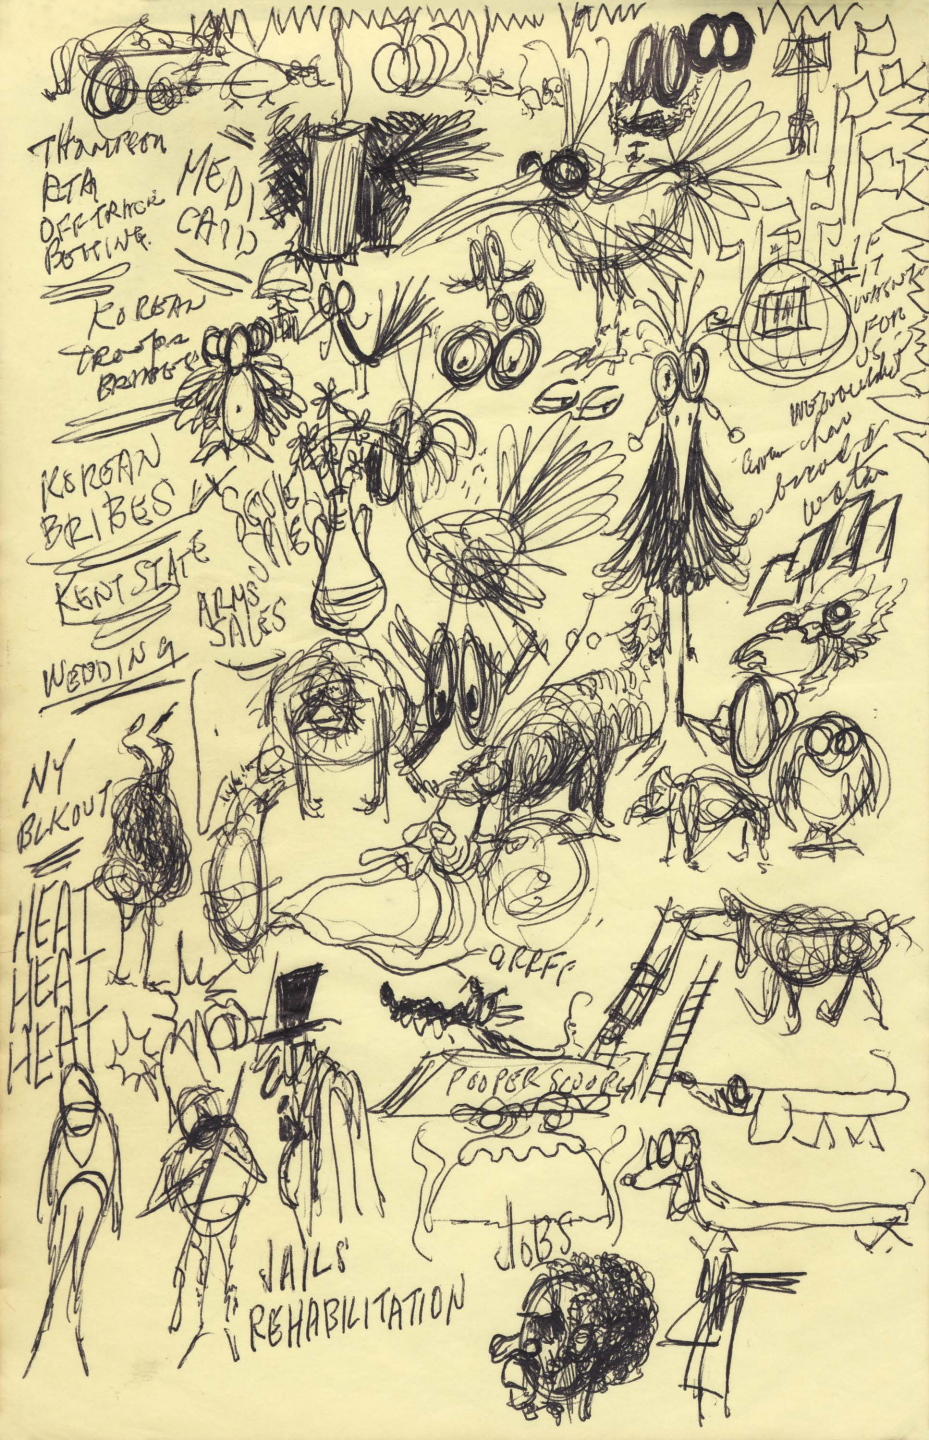 THOMPSON
RTA
OFF TRACK
BETTING
MEDI
CAID
KOREAN
TROOPS
BRIBES
KOREAN
BRIBES
KENT STATE
ARMS
SALES
WEDDING
NY
BLKOUT
HEAT
HEAT
HEAT
IF
IT
WASNT
FOR
US
WE WOULDNT
even have
bread &
water
ARRFF
POOPER SCOOPER
JOBS
JAILS
REHABILITATION